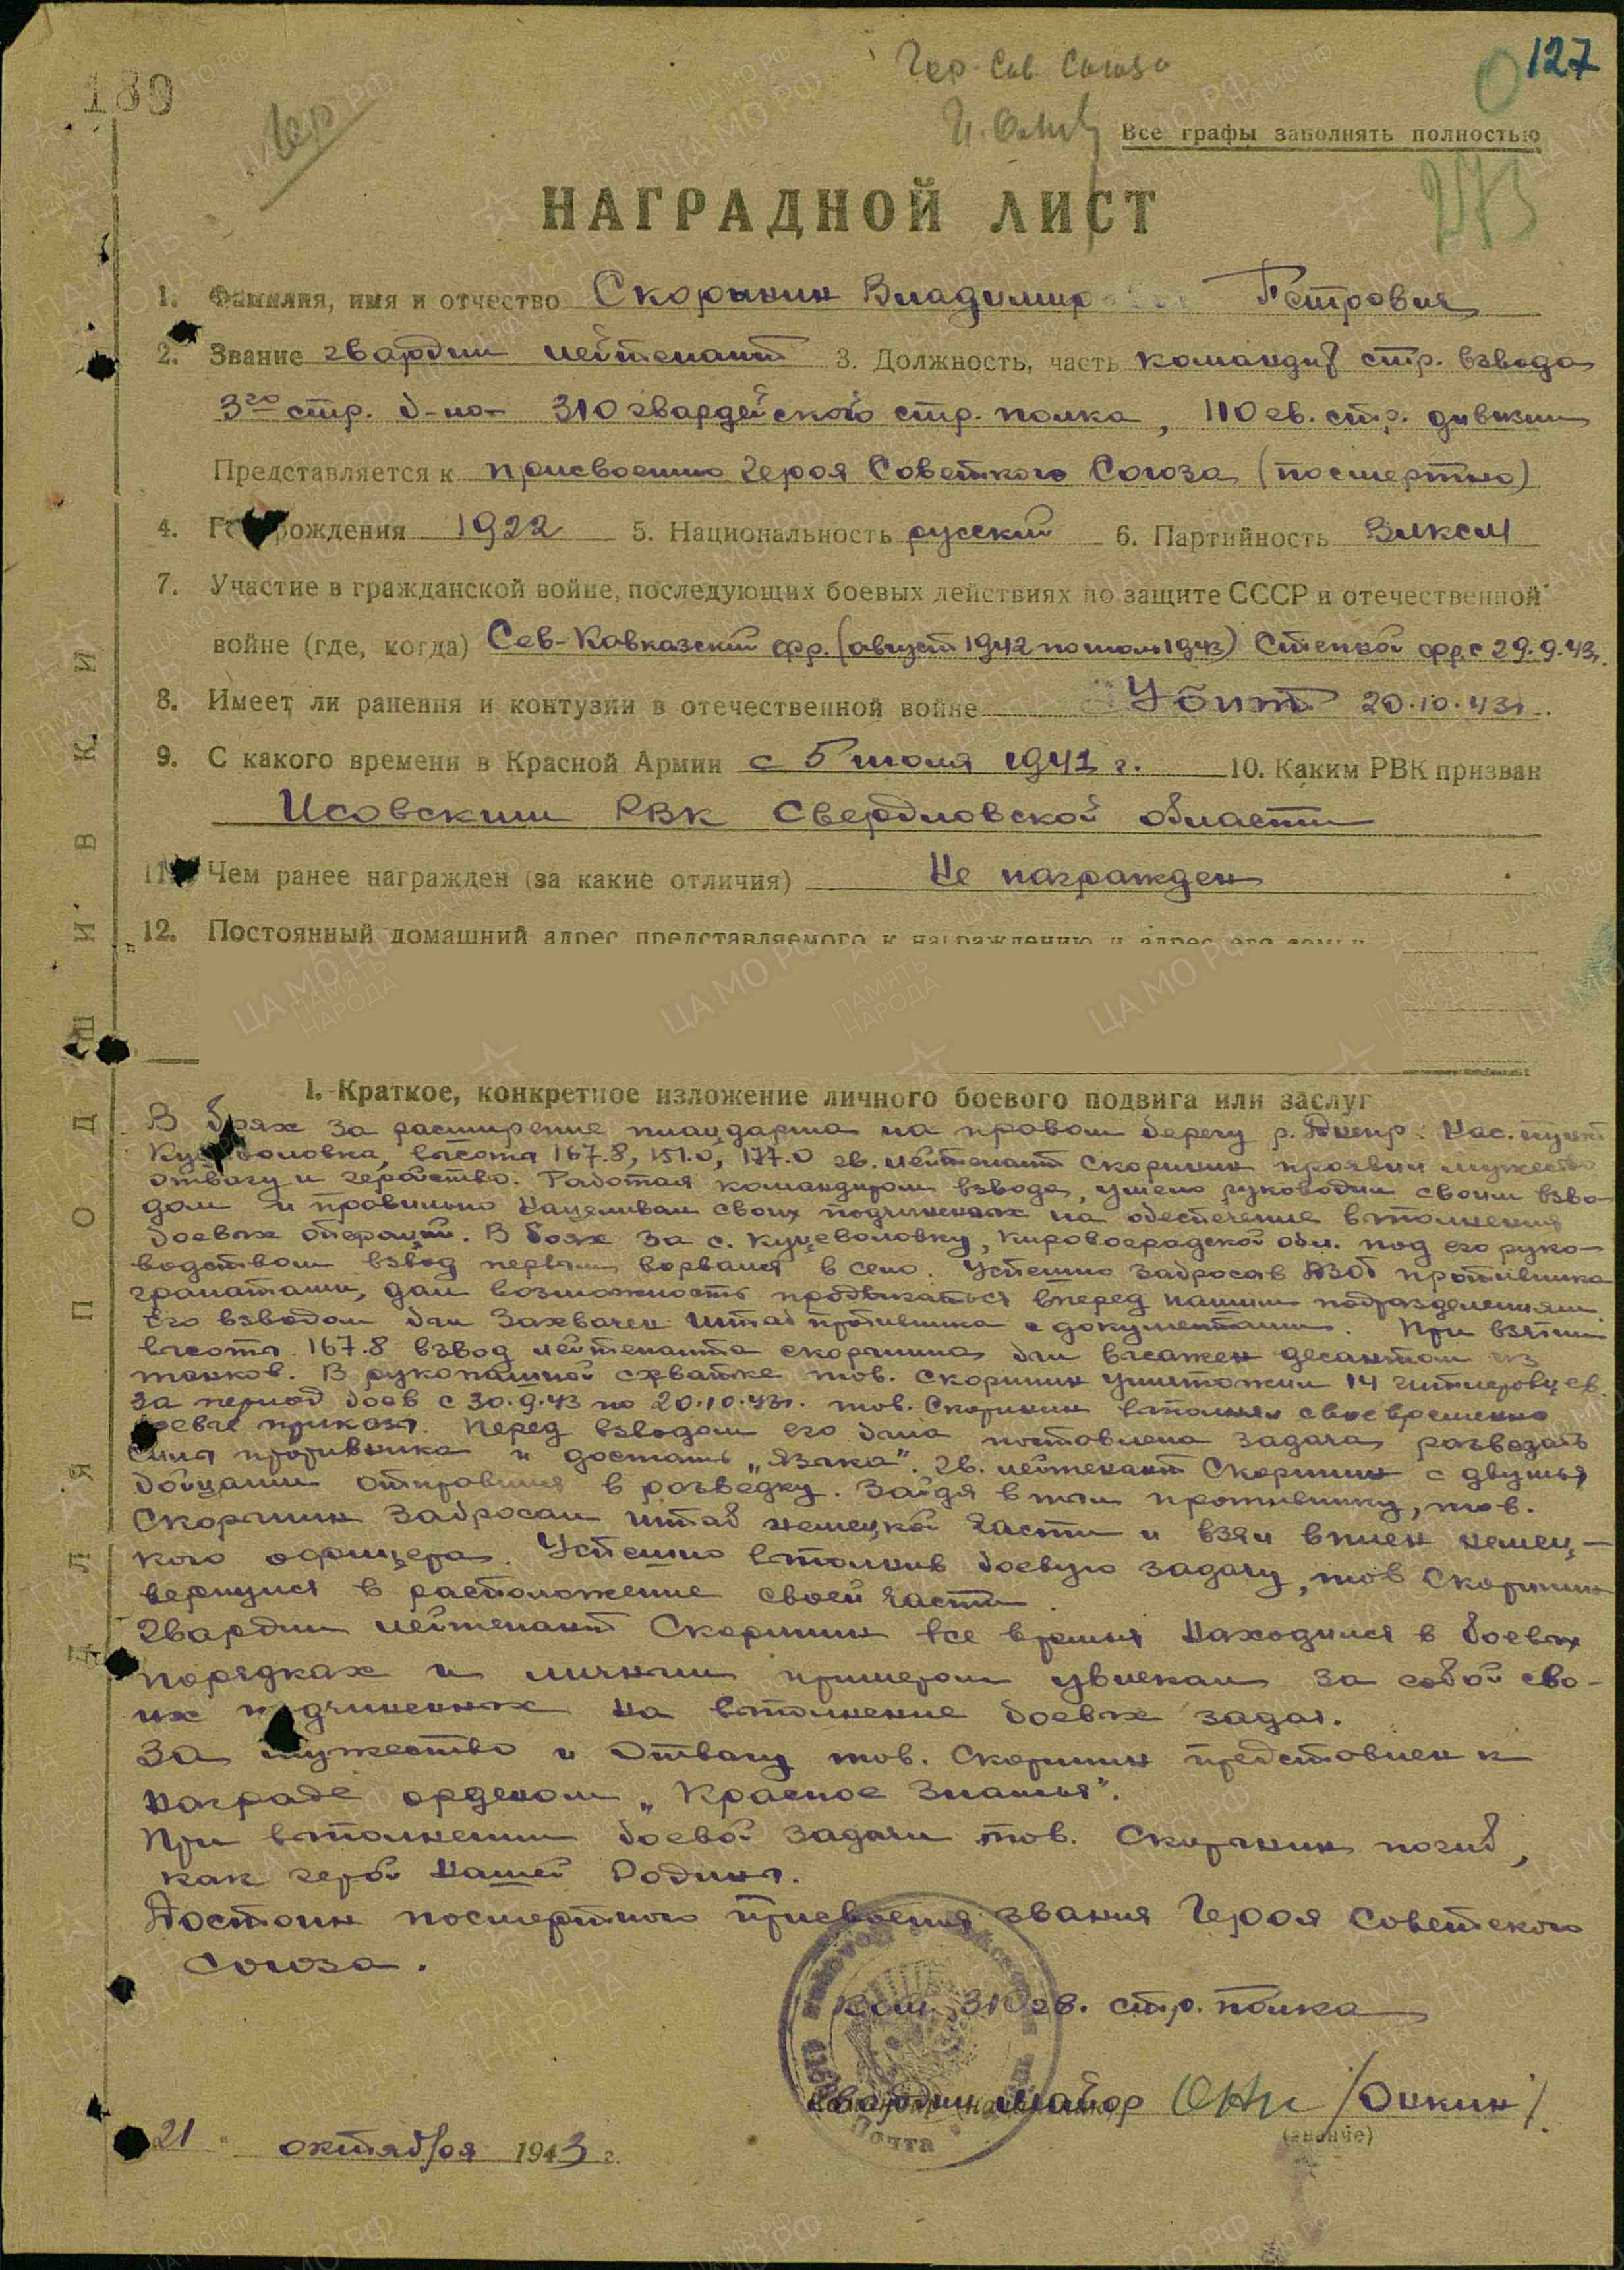 127
180
Гер. Сов. Союза
Гер
Все графы заполнять полностью
273
НАГРАДНОЙ ЛИСТ
1. Фамилия, имя и отчество Скорынин Владимир Петрович
2. Звание гвардии лейтенант 3. Должность, часть командир стр. взвода
3го стр. б-на 310 гвардейского стр. полка, 110 гв. стр. дивизии
Представляется к присвоению Героя Советского Союза (посмертно)
4. Год рождения 1922 5. Национальность русский 6. Партийность ВЛКСМ
7. Участие в гражданской войне, последующих боевых действиях по защите СССР и отечественной
войне (где, когда) Сев-Кавказский фр. (август 1942 по 1943) Степной фр. с 29.9.43г.
8. Имеет ли ранения и контузии в отечественной войне Убит 20.10.43г.
9. С какого времени в Красной Армии с 5 июля 1941 г. 10. Каким РВК призван
Исовским РВК Свердловской области
11. Чем ранее награжден (за какие отличия) Не награжден
12. Постоянный домашний адрес представляемого к награждению и адрес его семьи
ДЛЯ ПОДШИВКИ
I. Краткое, конкретное изложение личного боевого подвига или заслуг
В боях за расширение плацдарма на правом берегу р. Днепр. Нас. пункт
Куцеволовка, высоты 167.8, 151.0, 177.0 гв. лейтенант Скорынин проявил мужество
отвагу и геройство. Работая командиром взвода, умело руководил своим взво-
дом и правильно нацеливал своих подчиненных на обеспечение выполнения
боевых операций. В боях за с. Куцеволовку, Кировоградской обл. под его руко-
водством взвод первым ворвался в село. Успешно забросав ДЗОТ противника
гранатами, дал возможность продвигаться вперед нашим подразделениям.
Его взводом был захвачен штаб противника с документами. При взятии
высоты 167.8 взвод лейтенанта Скорынина был высажен десантом из
танков. В рукопашной схватке тов. Скорынин уничтожил 14 гитлеровцев.
За период боев с 30.9.43 по 20.10.43г. тов. Скорынин выполнял своевременно
боевые приказы. Перед взводом его была поставлена задача разведать
силы противника и достать „языка". Гв. лейтенант Скорынин с двумя
бойцами отправился в разведку. Зайдя в тыл противнику, тов.
Скорынин забросал штаб немецкой части и взял в плен немец-
кого офицера. Успешно выполнив боевую задачу, тов Скорынин
вернулся в расположение своей части.
Гвардии лейтенант Скорынин все время находился в боевых
порядках и личным примером увлекал за собой сво-
их подчиненных на выполнение боевых задач.
За мужество и отвагу тов. Скорынин представлен к
награде орденом „Красное Знамя".
При выполнении боевой задачи тов. Скорынин погиб,
как герой нашей Родины.
Достоин посмертного присвоения звания Героя Советского
Союза.
Ком. 310 гв. стр. полка
гвардии майор /Онкин/
(звание)
21 " октября 1943 г.
почта
ЦА МО РФ
ПАМЯТЬ НАРОДА